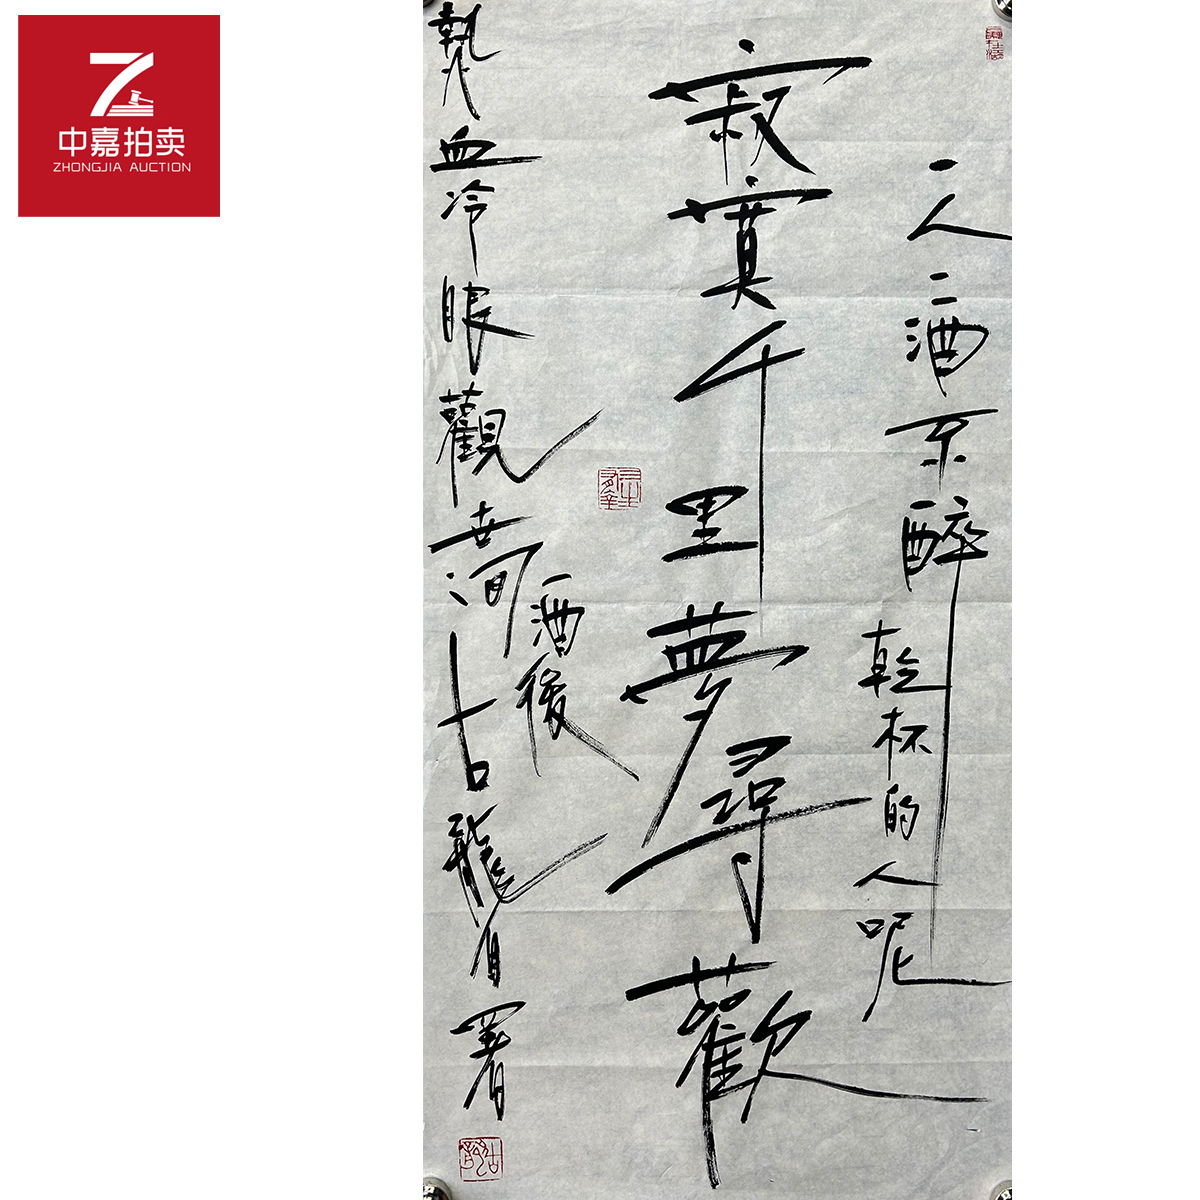 中嘉拍卖
ZHONGJIA AUCTION
一人二酒不醉乾杯的人呢
寂寞千里夢尋歡
熱血冷眼觀世間
酒後
古龍自署